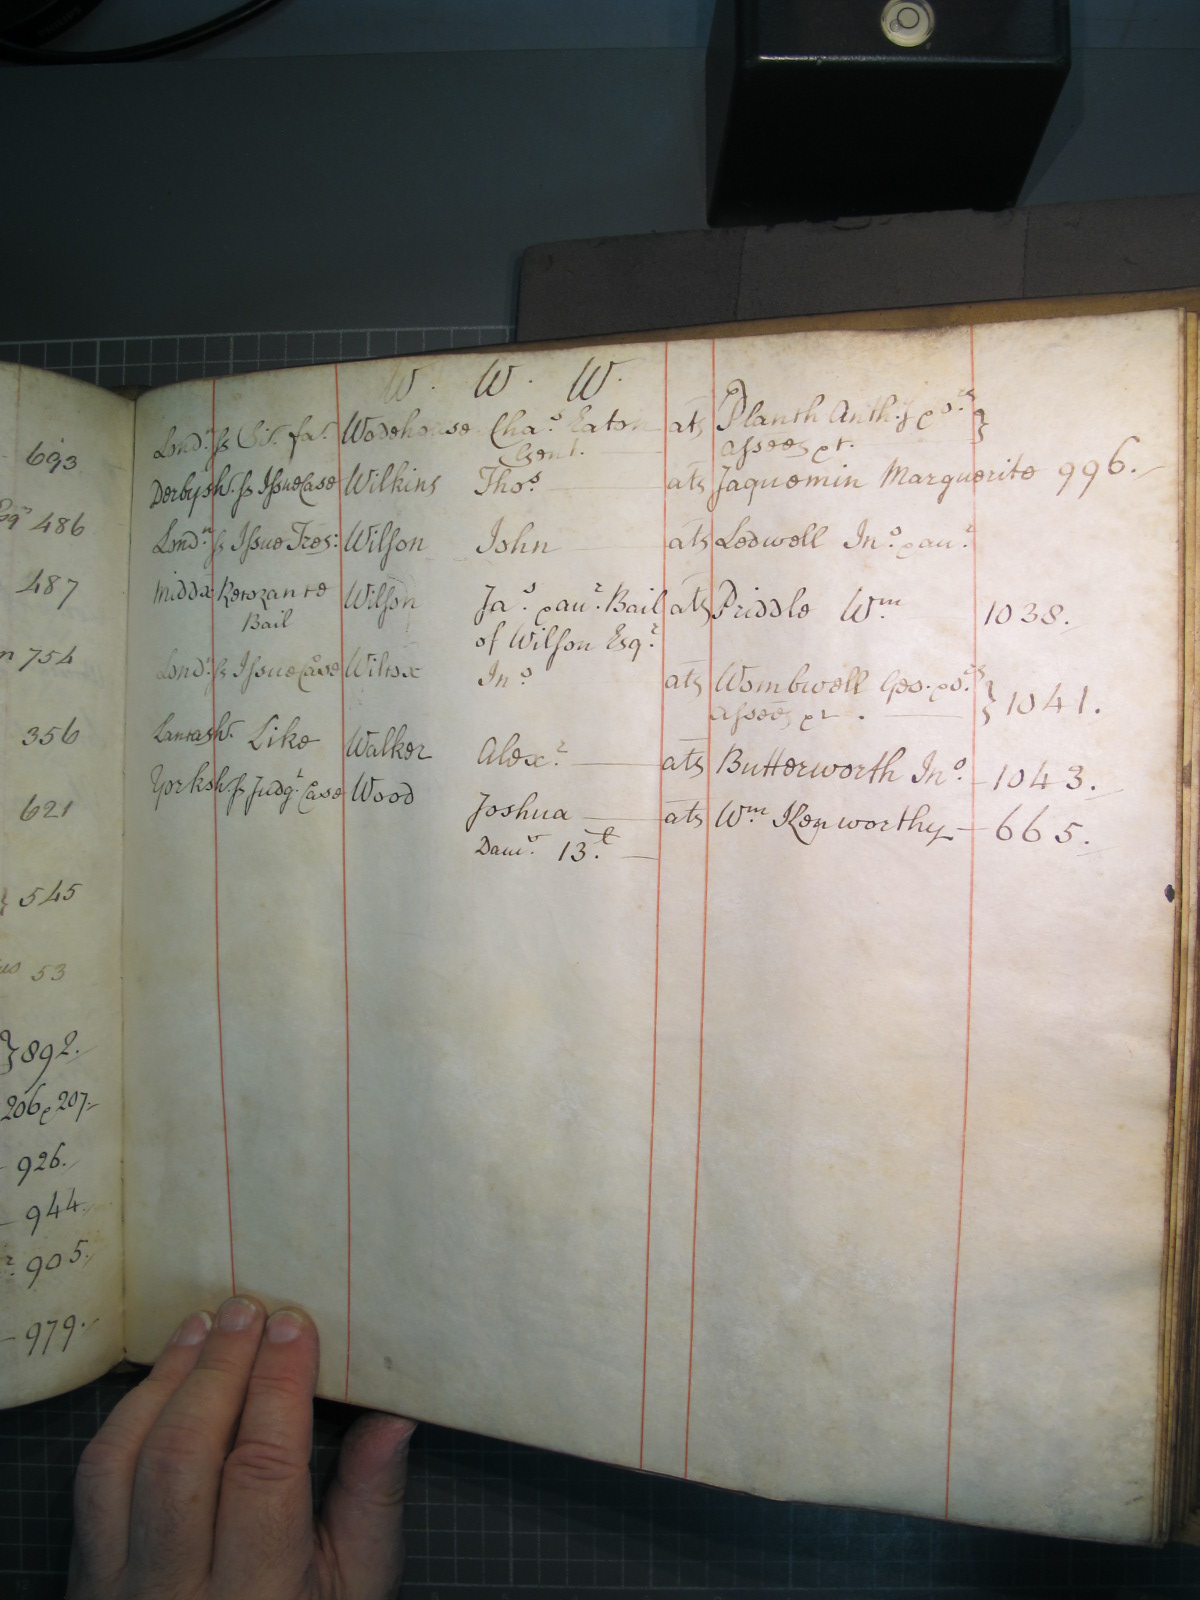 693
486
487
754
356
621
545
53
892.
206 & 207.
926.
944.
905.
979.
W. W. W.
Lond.ⁿ ſs Sci. fa.ˢ Wodehouse Cha.ˢ Eaton ats Planth Anth.y & o.ʳˢ }
Gent. assees &c.
Derbysh. ſs Issue Case Wilkins Tho.ˢ ats Jaquemin Marguerite 996.
Lond.ⁿ ſs Issue Tres: Wilson John ats Ledwell Jn.ᵒ & an.ʳ
Middx Recozance Wilson Ja.ˢ & an.ʳ Bail ats Priddle W.ᵐ 1038.
Bail of Wilson Esq.ʳ
Lond.ⁿ ſs Issue Case Wilcox Jn.ᵒ ats Wombwell Geo. & o.ʳˢ } 1041.
assees &c.
Lancash. Like Walker Alex.ʳ ats Butterworth Jn.ᵒ 1043.
Yorksh. ſs Judg.ᵗ Case Wood Joshua ats W.ᵐ Kenworthy 665.
13.ᵗ